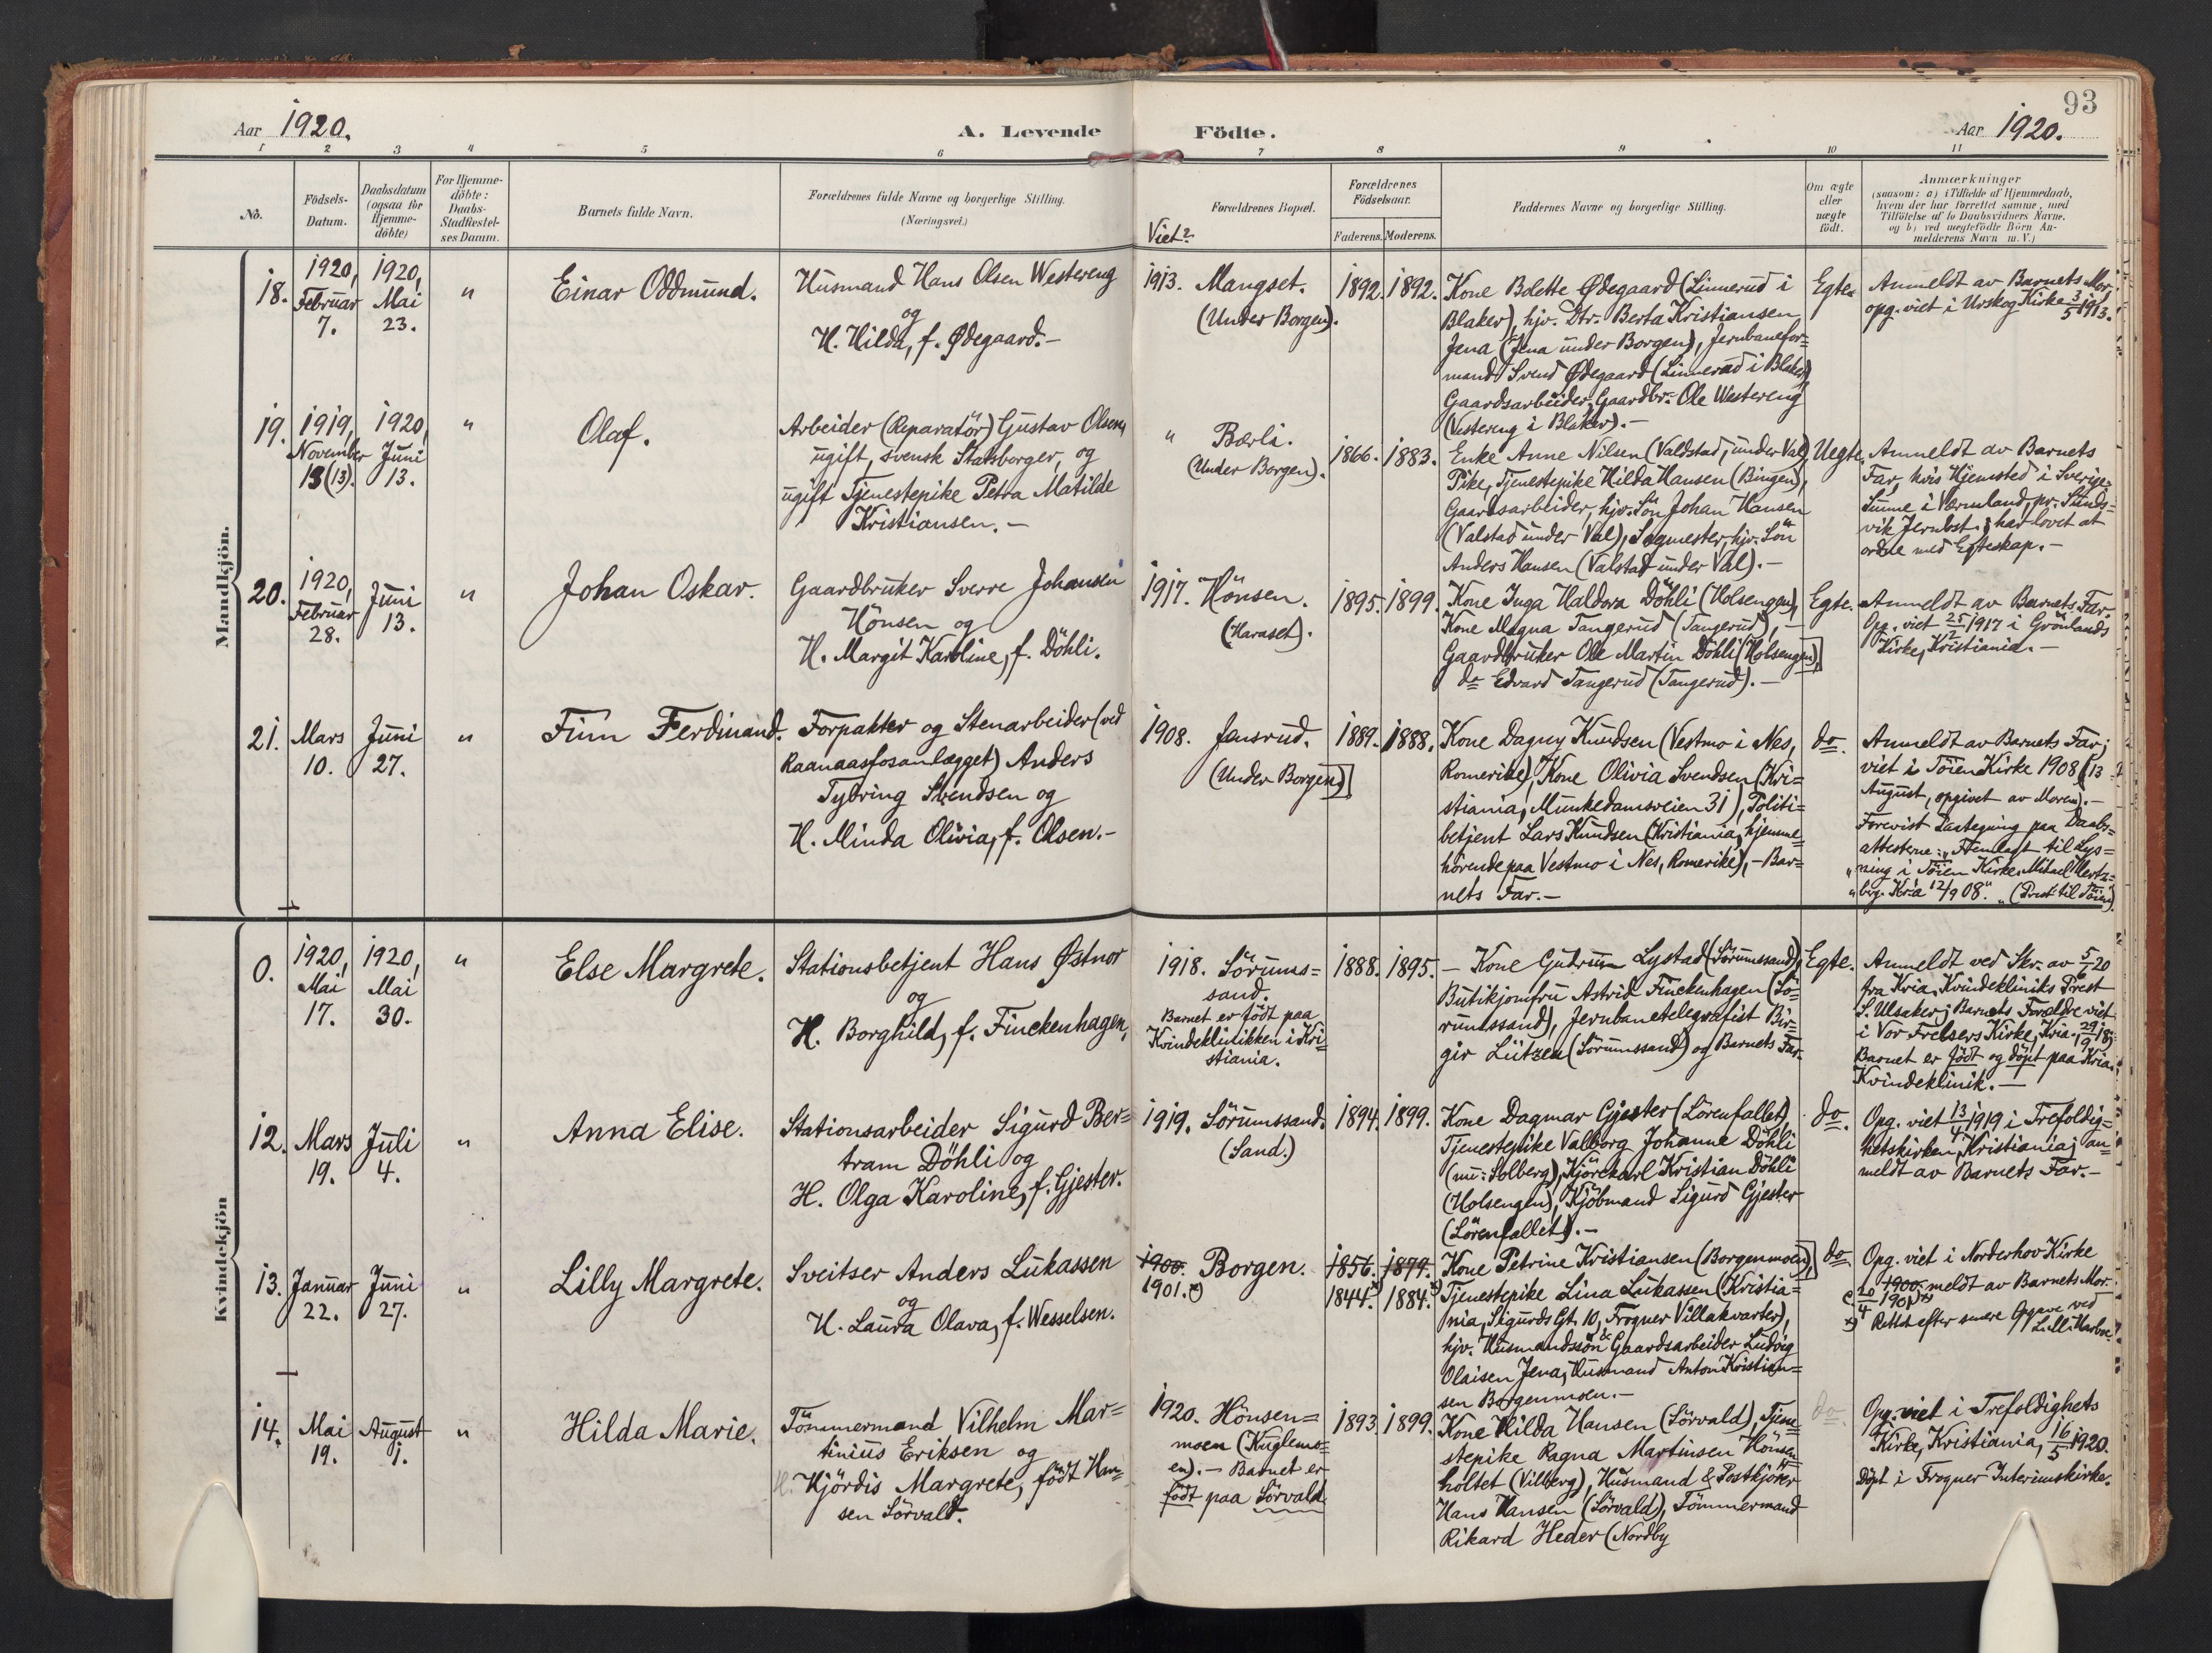 93
Aar 1920.
A. Levende Födte.
Aar 1920.
1 2 3 4 5 6 7 8 9 10 11
No.
Födsels-
Datum.
Daabsdatum
(ogsaa for
Hjemme-
döbte)
For Hjemme-
döbte:
Daabs-
Stadfæstel-
ses Datum.
Barnets fulde Navn.
Forældrenes fulde Navne og borgerlige Stilling.
(Næringsvei.)
Viet?
Forældrenes Bopæl.
Forældrenes
Födselsaar.
Faderens. Moderens.
Faddernes Navne og borgerlige Stilling.
Om ægte
eller
uægte
födt.
Anmærkninger
(saasom: a) i Tilfælde af Hjemmedaab,
hvem der har forrettet samme, med
Tilföielse af to Daabsvidners Navne.
og b) ved uægtefödte Börn An-
melderens Navn m. V.)
Mandkjön.
18.
1920,
Februar
7.
1920,
Mai
23.
"
Einar Oddmund.
Husmand Hans Olsen Westereng
og
H. Hilda, f. Ødegaard.-
1913. Mangset.
(Under Borgen).
1892. 1892.
Kone Bolette Ødegaard (Linnerud i
Blaker), hjv. Dtr. Berta Kristiansen
Jena (Jena under Borgen), Jernbanefor=
mand Svend Ødegaard (Linnerud i Blaker)
Gaardsarbeider, Gaardbr. Ole Westereng
(Vestereng i Blaker).-
Egte.
Anmeldt av Barnets Mor,
opg. viet i Urskog Kirke 3/5 1913.
19.
1919,
November
13 (13).
1920,
Juni
13.
"
Olaf.
Arbeider (Reparatör) Gustav Olsen,
ugift, svensk Statsborger, og
ugift Tjenestepike Petra Matilde
Kristiansen.-
" Bærli.
(Under Borgen).
1866. 1883.
Enke Anne Nilsen (Valdstad, under Val)
Pike, Tjenestepike Hilda Hansen (Bingen),
Gaardsarbeider, hjv. Sön Johan Hansen
(Valstad under Val), Sagmester, hjv. Sön
Anders Hansen (Valstad under Val).-
Uegte.
Anmeldt av Barnets
Far, hvis Hjemsted i Sverige:
Sunne i Værmland, pr. Sunds=
vik Jernbst.; har lovet at
ordne med Egteskap.-
20.
1920,
Februar
28.
Juni
13.
"
Johan Oskar.
Gaardbruker Sverre Johansen
Hönsen og
H. Margit Karoline, f. Döhli.
1917. Hönsen.
(Haraset).
1895. 1899.
Kone Inga Haldora Döhli (Holsengen),
Kone Magna Tangerud (Tangerud),-
Gaardbruker Ole Martin Döhli (Holsengen),
do Edvard Tangerud (Tangerud).-
Egte.
Anmeldt av Barnets Far.
Opg. viet 25/2 1917 i Grönlands
Kirke, Kristiania.-
21.
Mars
10.
Juni
27.
"
Finn Ferdinand.
Forpakter og Stenarbeider (ved
Raanaasfosanlægget) Anders
Tybring Svendsen og
H. Minda Olivia, f. Olsen.-
1908. Jensrud.
(Under Borgen)
1889. 1888.
Kone Dagny Knudsen (Vestmo i Nes,
Romerike), Kone Olivia Svendsen (Kri=
stiania, Munkedamsveien 31), Politi=
betjent Lars Knudsen (Kristiania, hjemme=
hörende paa Vestmo i Nes, Romerike),-Bar=
nets Far.-
do.
Anmeldt av Barnets Far;
viet i Töien Kirke 1908 (13
August, opgivet av Moren).-
Forevist Paategning paa Daabs=
attesterne: "Fremlagt til Lys=
"ning i Töien Kirke. Mikael Hertz=
"berg. Kria 12/9 08." (Prest til Töien).
Kvindekjön
0.
1920,
Mai
17.
1920,
Mai
30.
"
Else Margrete.
Stationsbetjent Hans Østnor
og
H. Borghild, f. Finckenhagen,
1918. Sörums=
sand.
Barnet er födt paa
Kvindeklinikken i Kri=
stiania.
1888. 1895.
- Kone Gudrun Lystad (Sörumssand),
Butikjomfru Astrid Finckenhagen (Sö=
rumssand), Jernbanetelegrafist Bir=
gir Lützen (Sörumssand) og Barnets Far.
Egte.
Anmeldt ved Skr. av 5/6 20
fra Kria. Kvindekliniks Prest
S. Ulsaker; Barnets Forældre viet
i Vor Frelsers Kirke, Kria. 29/9 18;
Barnet er födt og döpt paa Kria.
Kvindeklinik.-
12.
Mars
19.
Juli
4.
"
Anna Elise.
Stationsarbeider Sigurd Ber=
tram Döhli og
H. Olga Karoline, f. Gjester.
1919. Sörumssand.
(Sand.)
1894. 1899.
Kone Dagmar Gjester (Lörenfallet),
Tjenestepike Valborg Johanne Döhli
(nu: Solberg), Kjörekarl Kristian Döhli
(Holsengen), Kjöbmand Sigurd Gjester
(Lörenfallet).-
do.
Opg. viet 13/4 1919 i Trefoldig=
hetskirken, Kristiania; an=
meldt av Barnets Far.-
13.
Januar
22.
Juni
27.
"
Lilly Margrete.
Sveitser Anders Lukassen
og
H. Laura Olava, f. Wesselsen.
1900. Borgen.
1901. x)
1856. 1879.
1844. 1884. x)
Kone Petrine Kristiansen (Borgenmoen)
Tjenestepike Lina Lukassen (Kristia=
nia, Sigurds Gt. 10, Frogner Villakvarter),
hjv. Husmandssön & Gaardsarbeider Ludvig
Olaisen Jena, Husmand Anton Kristian=
sen Borgenmoen.-
do
Opg. viet i Norderhov Kirke
1900. meldt av Barnets Mor.
20/4 1901 x)
x) Rettet efter senere Opgave ved
14.
Mai
19.
August
1.
"
Hilda Marie.
Tömmermand Vilhelm Mar=
tinius Eriksen og
H. Hjördis Margrete, födt Han=
sen Sörvald.
1920. Hönsen=
moen (Kuglemo=
en).- Barnet er
födt paa Sörvald
1893. 1899.
Kone Hilda Hansen (Sörvald), Tjene
stepike Ragna Martinsen Hönsen
holtet (Vilberg), Husmand & Postkjörer
Hans Hansen (Sörvald), Tömmermand
Rikard Heder (Nordby
do.
Opg. viet i Trefoldighets
Kirke, Kristiania, 16/5 1920.
Döpt i Frogner Interimskirke.